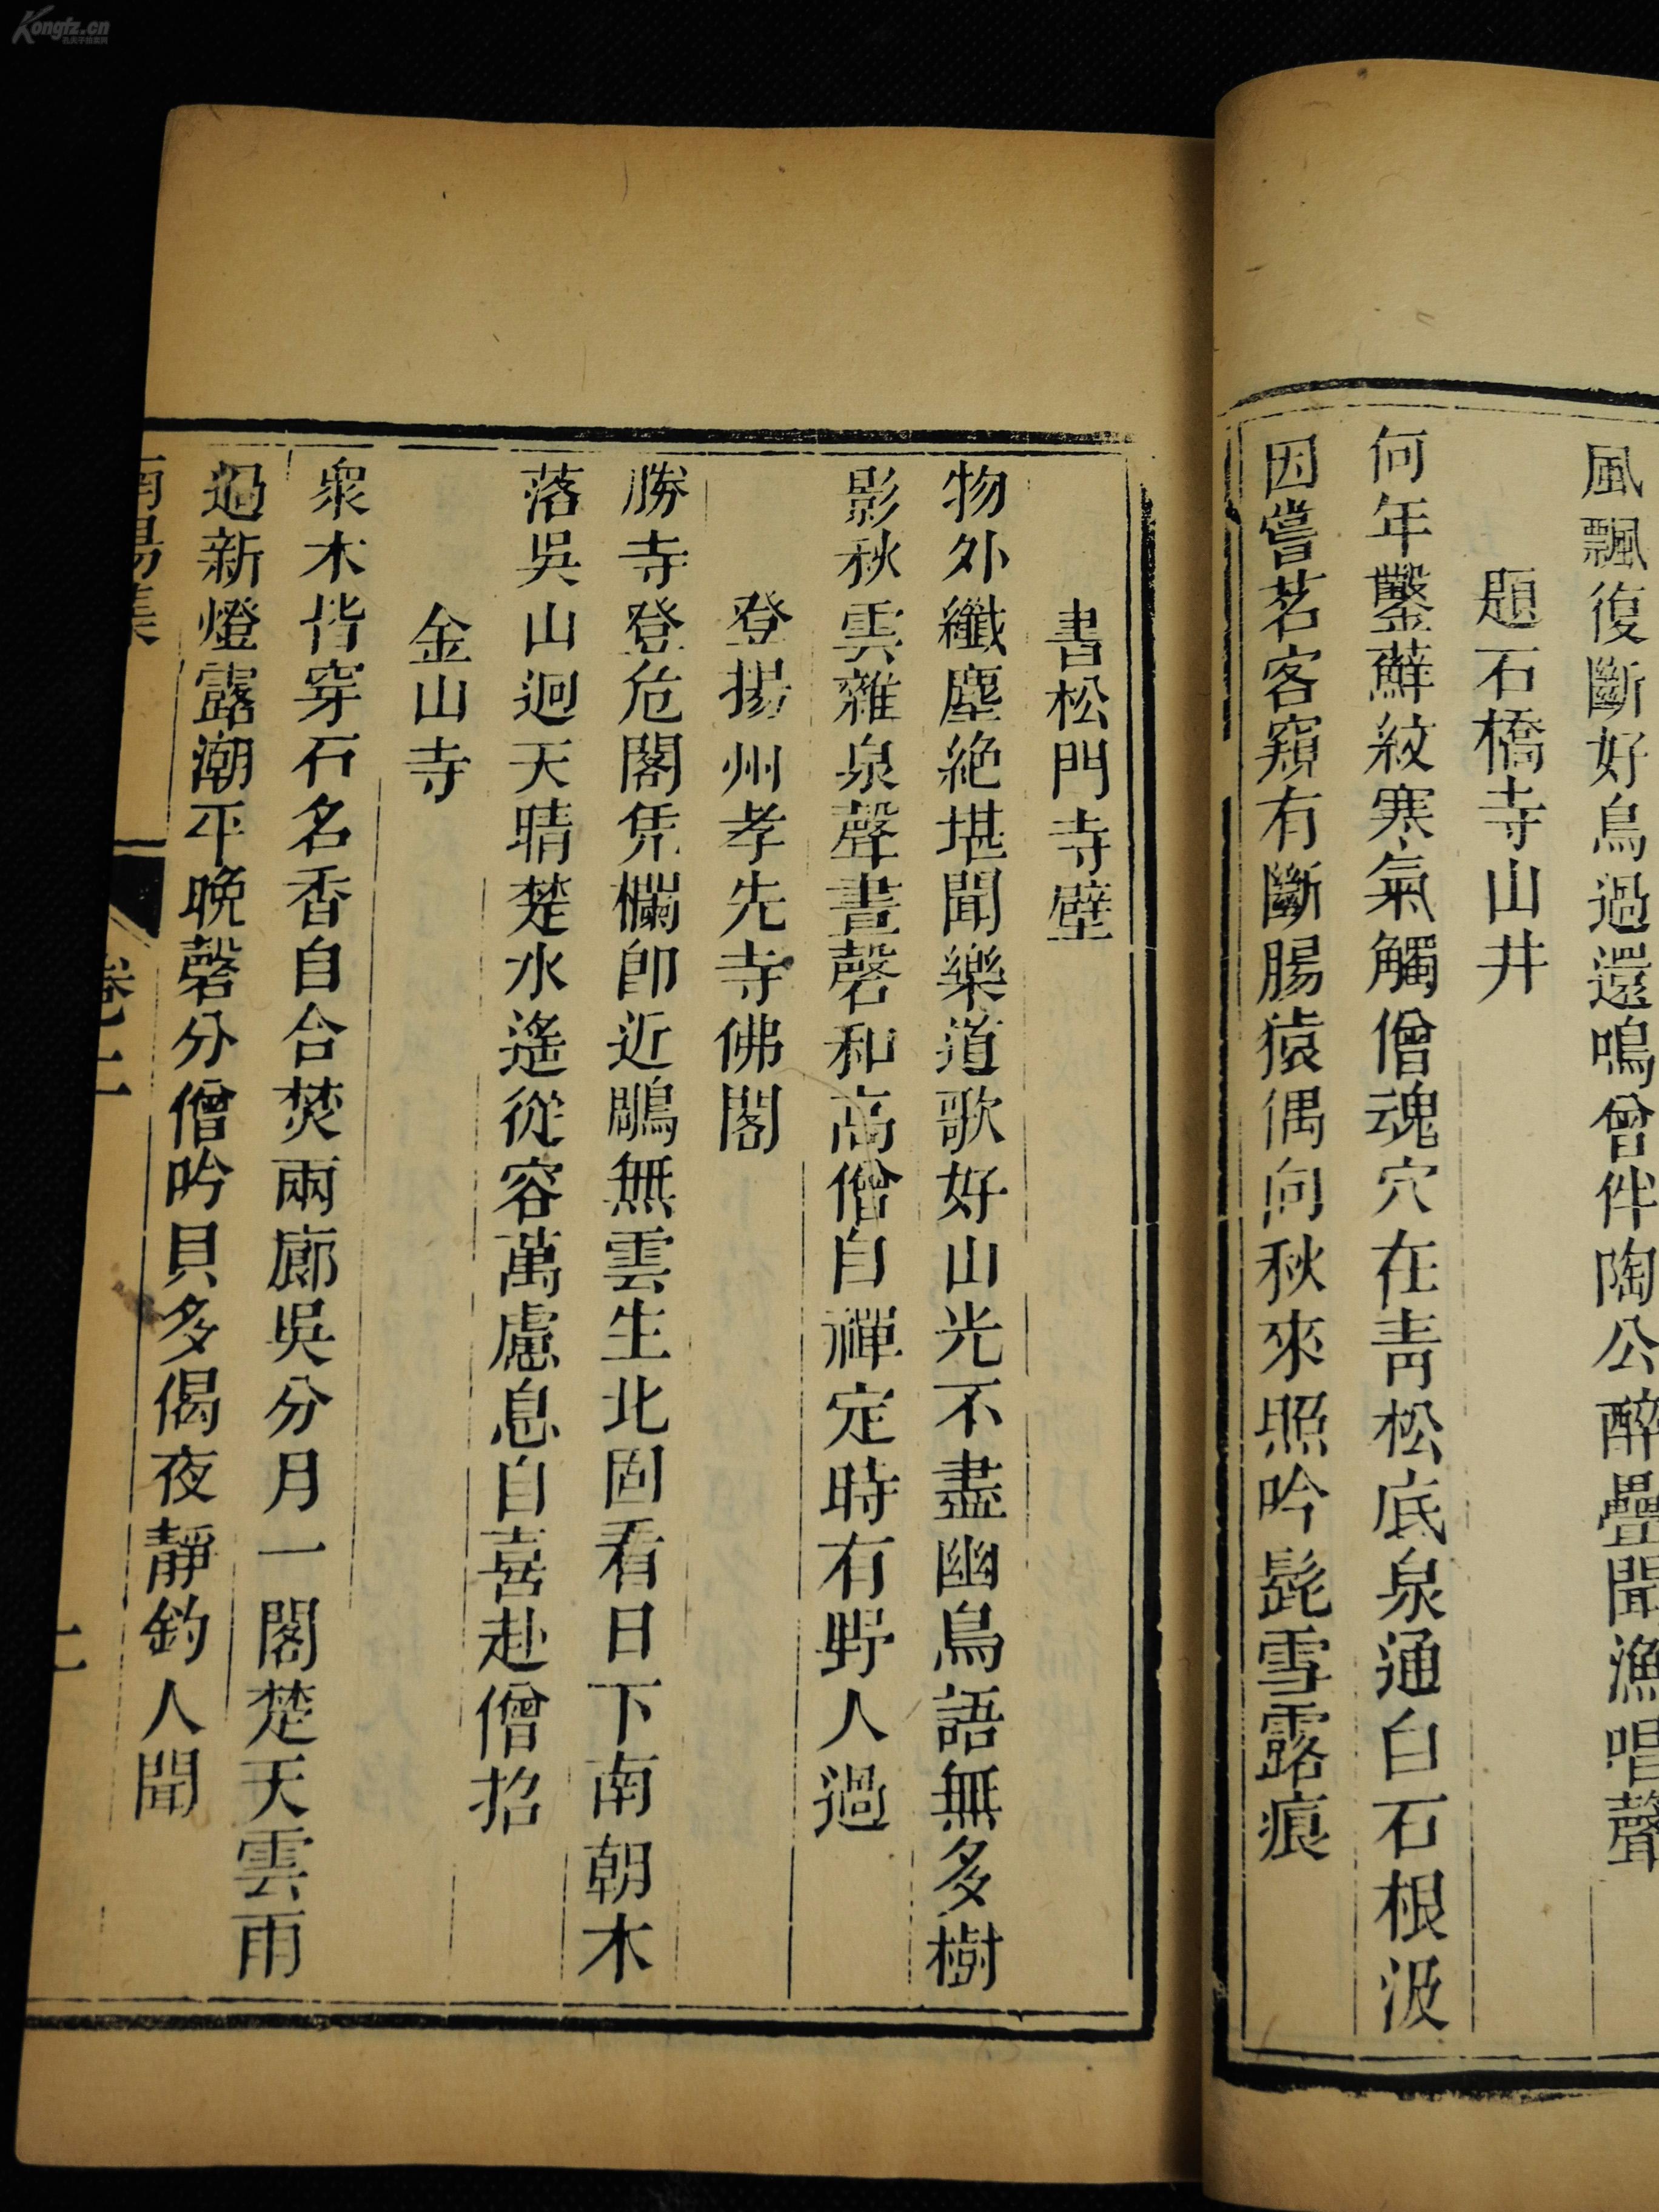 Kongfz.cn
風飄復斷好鳥過還鳴曾伴陶公醉疊聞漁唱聲
題石橋寺山井
何年鑿蘚紋寒氣觸僧魂穴在靑松底泉通白石根汲
因嘗茗客窺有斷腸猿偶向秋來照吟髭雪露痕
書松門寺壁
物外纖塵絶堪聞樂道歌好山光不盡幽鳥語無多樹
影秋雲雜泉聲晝磬和高僧自禪定時有野人過
登揚州孝先寺佛閣
勝寺登危閣凭欄卽近鵰無雲生北固看日下南朝木
落吳山迥天晴楚水遙從容萬慮息自喜赴僧招
金山寺
衆木皆穿石名香自合焚兩廊吳分月一閣楚天雲雨
過新燈露潮平晚磬分僧吟貝多偈夜靜釣人聞
南陽集
卷上